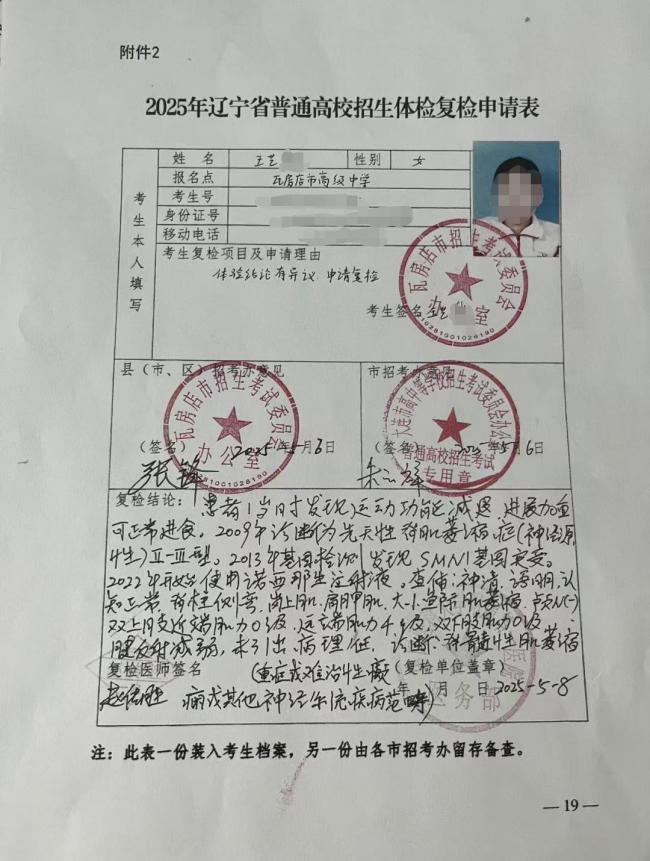 附件2
2025年辽宁省普通高校招生体检复检申请表
考生本人填写
姓 名 王艺 性别 女
报名点 瓦房店市高级中学
考生号
身份证号
移动电话
考生复检项目及申请理由
体检结论有异议,申请复检
考生签名 王艺
瓦房店市招生考试委员会
办公室
县(市、区)招考办意见
瓦房店市招生考试委员会
办公室
(签名) 2025年5月6日
市招考办意见
大连市高中等学校招生考试委员会办公
普通高校招生考试
专用章
(签名) 2025年5月6日
复检结论:患者1岁时发现运动功能减退,进展加重
可正常进食。2009年诊断为先天性脊肌萎缩症(神经源
性)Ⅱ-Ⅲ型。2013年基因检测发现SMN1基因突变。
2022年开始使用诺西那生注射液。查体:神清,语明,认
知正常,脊柱侧弯,岗上肌、肩胛肌、大小鱼际肌萎缩,
双上肢近端肌力0级,远端肌力4级,双下肢肌力0级
腱反射减弱,未引出病理征。诊断:脊髓性肌萎缩
复检医师签名 (重症或难治性癫 (复检单位盖章)
痫或其他神经系统疾病范畴) 年 月 日 2025-5-8
医务部
注:此表一份装入考生档案,另一份由各市招考办留存备查。
— 19 —